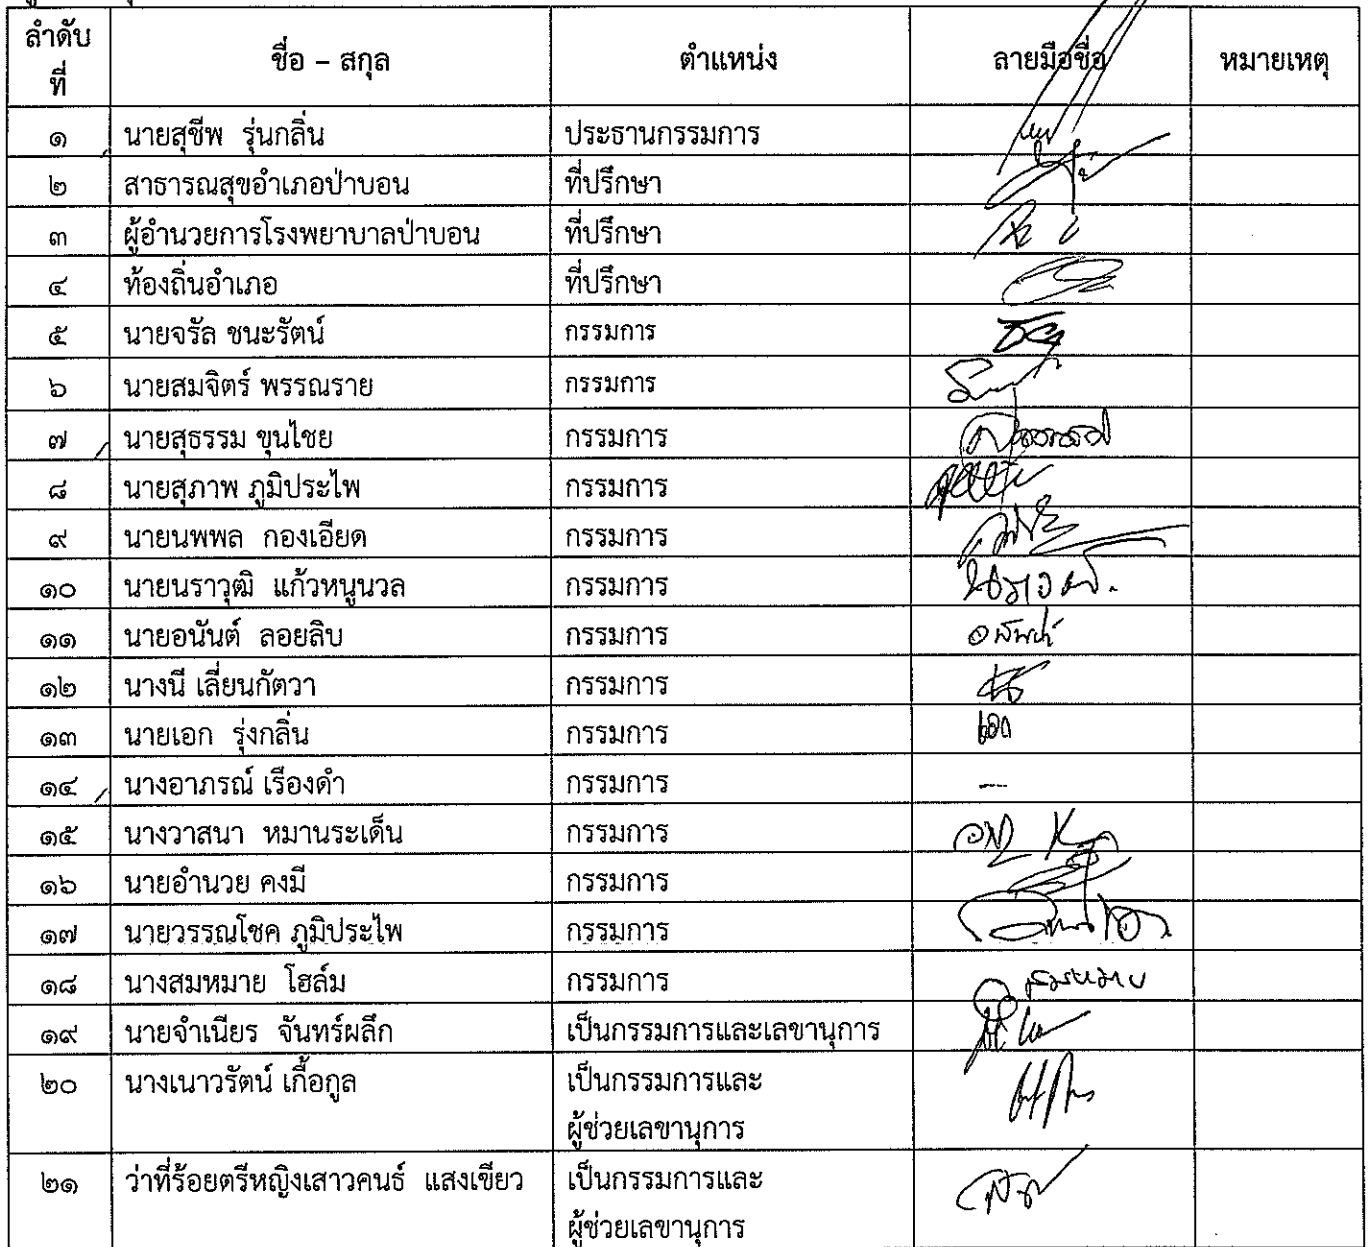 ลำดับ
ที่
ชื่อ – สกุล
ตำแหน่ง
ลายมือชื่อ
หมายเหตุ
๑ นายสุชีพ รุ่นกลิ่น ประธานกรรมการ
๒ สาธารณสุขอำเภอป่าบอน ที่ปรึกษา
๓ ผู้อำนวยการโรงพยาบาลป่าบอน ที่ปรึกษา
๔ ท้องถิ่นอำเภอ ที่ปรึกษา
๕ นายจรัล ชนะรัตน์ กรรมการ
๖ นายสมจิตร์ พรรณราย กรรมการ
๗ นายสุธรรม ขุนไชย กรรมการ
๘ นายสุภาพ ภูมิประไพ กรรมการ
๙ นายนพพล กองเอียด กรรมการ
๑๐ นายนราวุฒิ แก้วหนูนวล กรรมการ
๑๑ นายอนันต์ ลอยลิบ กรรมการ
๑๒ นางนี เลี่ยนกัตวา กรรมการ
๑๓ นายเอก รุ่งกลิ่น กรรมการ เอก
๑๔ นางอาภรณ์ เรืองดำ กรรมการ -
๑๕ นางวาสนา หมานระเด็น กรรมการ
๑๖ นายอำนวย คงมี กรรมการ
๑๗ นายวรรณโชค ภูมิประไพ กรรมการ
๑๘ นางสมหมาย โฮล์ม กรรมการ สมหมาย
๑๙ นายจำเนียร จันทร์ผลึก เป็นกรรมการและเลขานุการ
๒๐ นางเนาวรัตน์ เกื้อกูล เป็นกรรมการและ
ผู้ช่วยเลขานุการ
๒๑ ว่าที่ร้อยตรีหญิงเสาวคนธ์ แสงเขียว เป็นกรรมการและ
ผู้ช่วยเลขานุการ